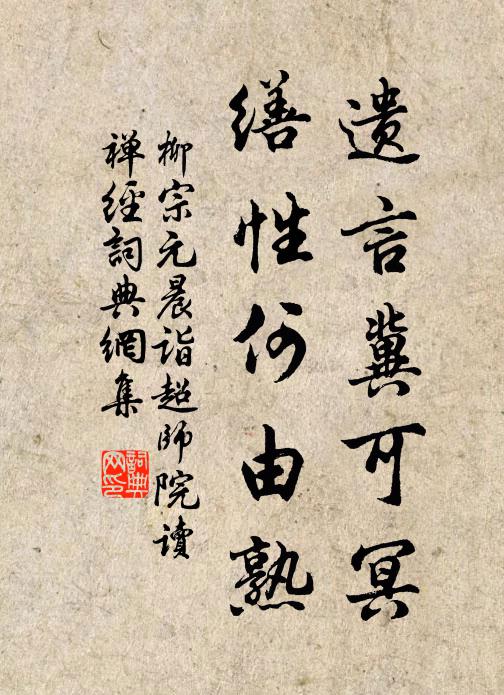 遗言冀可冥
缮性何由熟
柳宗元晨诣超师院读
禅经词典網集
詞典网印